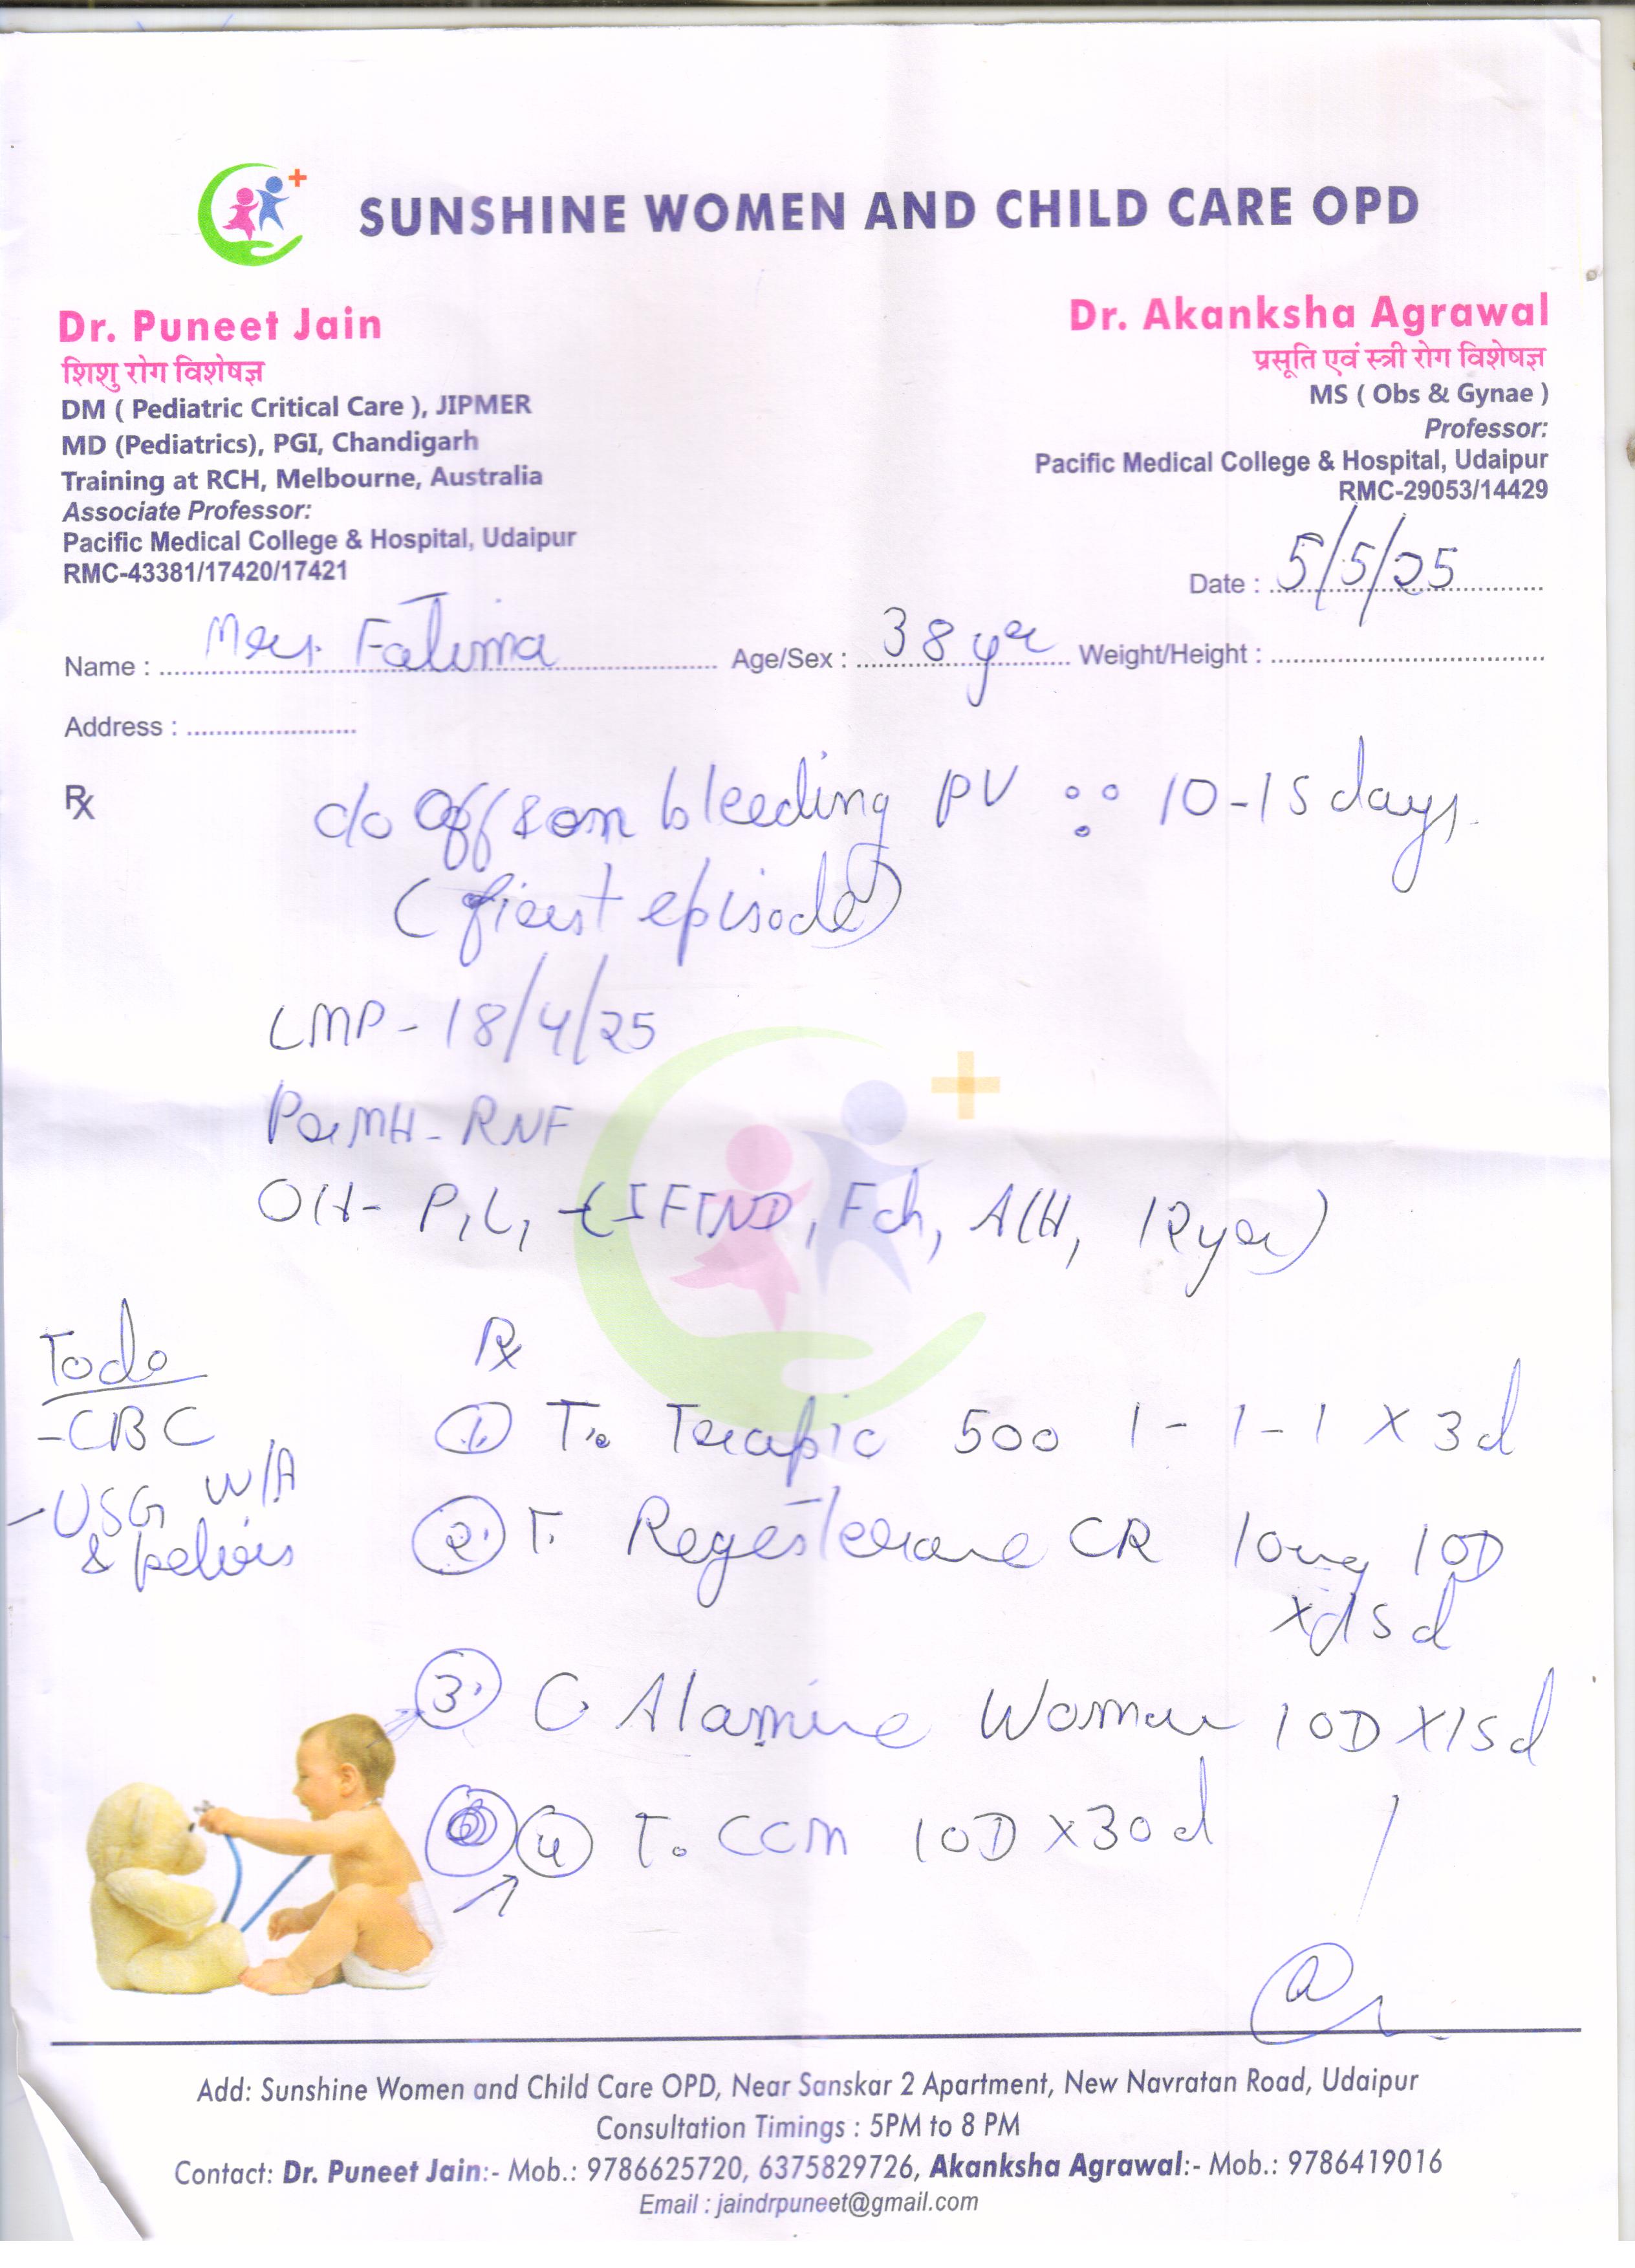 SUNSHINE WOMEN AND CHILD CARE OPD
Dr. Puneet Jain
शिशु रोग विशेषज्ञ
DM ( Pediatric Critical Care ), JIPMER
MD (Pediatrics), PGI, Chandigarh
Training at RCH, Melbourne, Australia
Associate Professor:
Pacific Medical College & Hospital, Udaipur
RMC-43381/17420/17421
Dr. Akanksha Agrawal
प्रसूति एवं स्त्री रोग विशेषज्ञ
MS ( Obs & Gynae )
Professor:
Pacific Medical College & Hospital, Udaipur
RMC-29053/14429
Date : 5/5/25
Name : Mrs. Fatima Age/Sex : 38 yr Weight/Height :
Address :
℞ c/o bleeding PV 10-15 days.
(first episode)
LMP - 18/4/25
PrMH - RNF
OH - P1L1 - ( FTND, Fch, A/H, 12 yr)
To do
- CBC
- USG W/A
& pelvis
℞
① T. Trapic 500 1-1-1 X 3d
② T. Regesterone CR 10mg 1OD
x 15d
③ C. Alamine Women 1OD X 15d
④ T. CCM 1OD X 30d
Add: Sunshine Women and Child Care OPD, Near Sanskar 2 Apartment, New Navratan Road, Udaipur
Consultation Timings : 5PM to 8 PM
Contact: Dr. Puneet Jain:- Mob.: 9786625720, 6375829726, Akanksha Agrawal:- Mob.: 9786419016
Email : jaindrpuneet@gmail.com